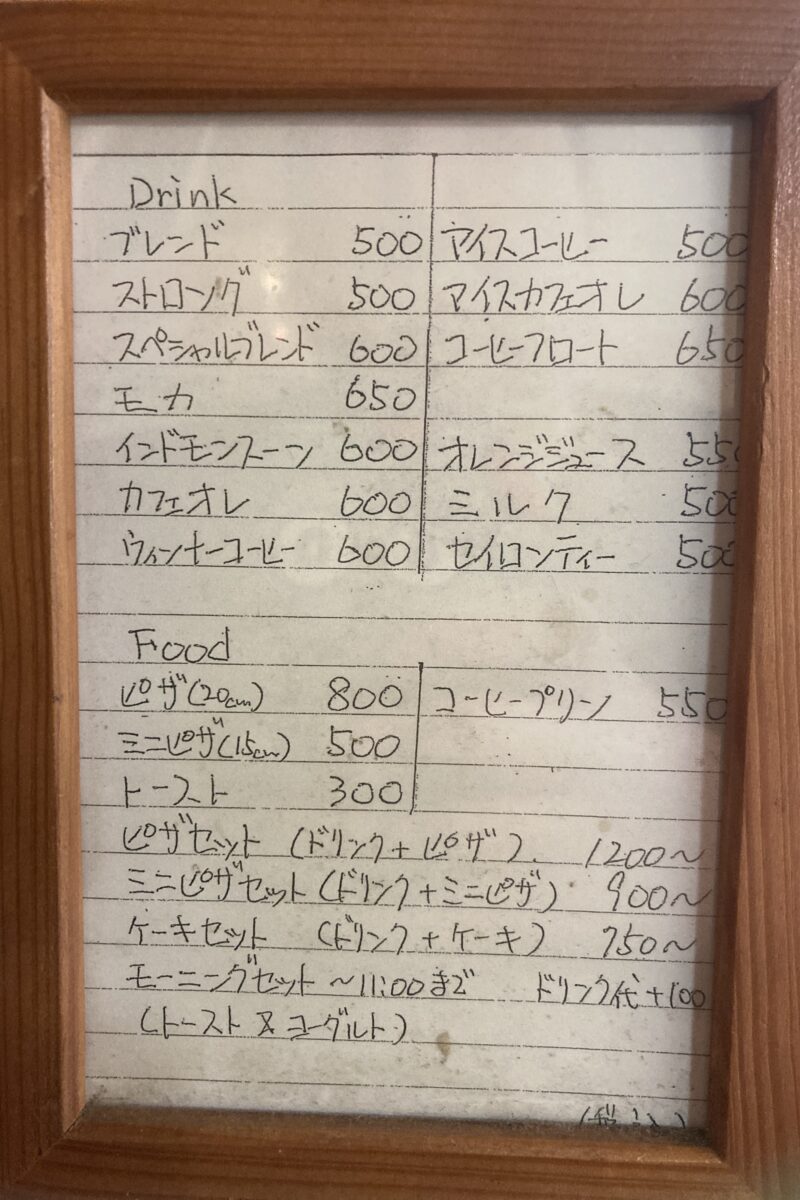 Drink
ブレンド 500 アイスコーヒー 500
ストロング 500 アイスカフェオレ 600
スペシャルブレンド 600 コーヒーフロート 650
モカ 650
インドモンスーン 600 オレンジジュース 550
カフェオレ 600 ミルク 500
ウィンナーコーヒー 600 セイロンティー 500
Food
ピザ(20cm) 800 コーヒープリン 550
ミニピザ(15cm) 500
トースト 300
ピザセット (ドリンク+ピザ). 1200〜
ミニピザセット (ドリンク+ミニピザ) 900〜
ケーキセット (ドリンク+ケーキ) 750〜
モーニングセット 〜11:00まで ドリンク代+100
(トースト ヨーグルト)